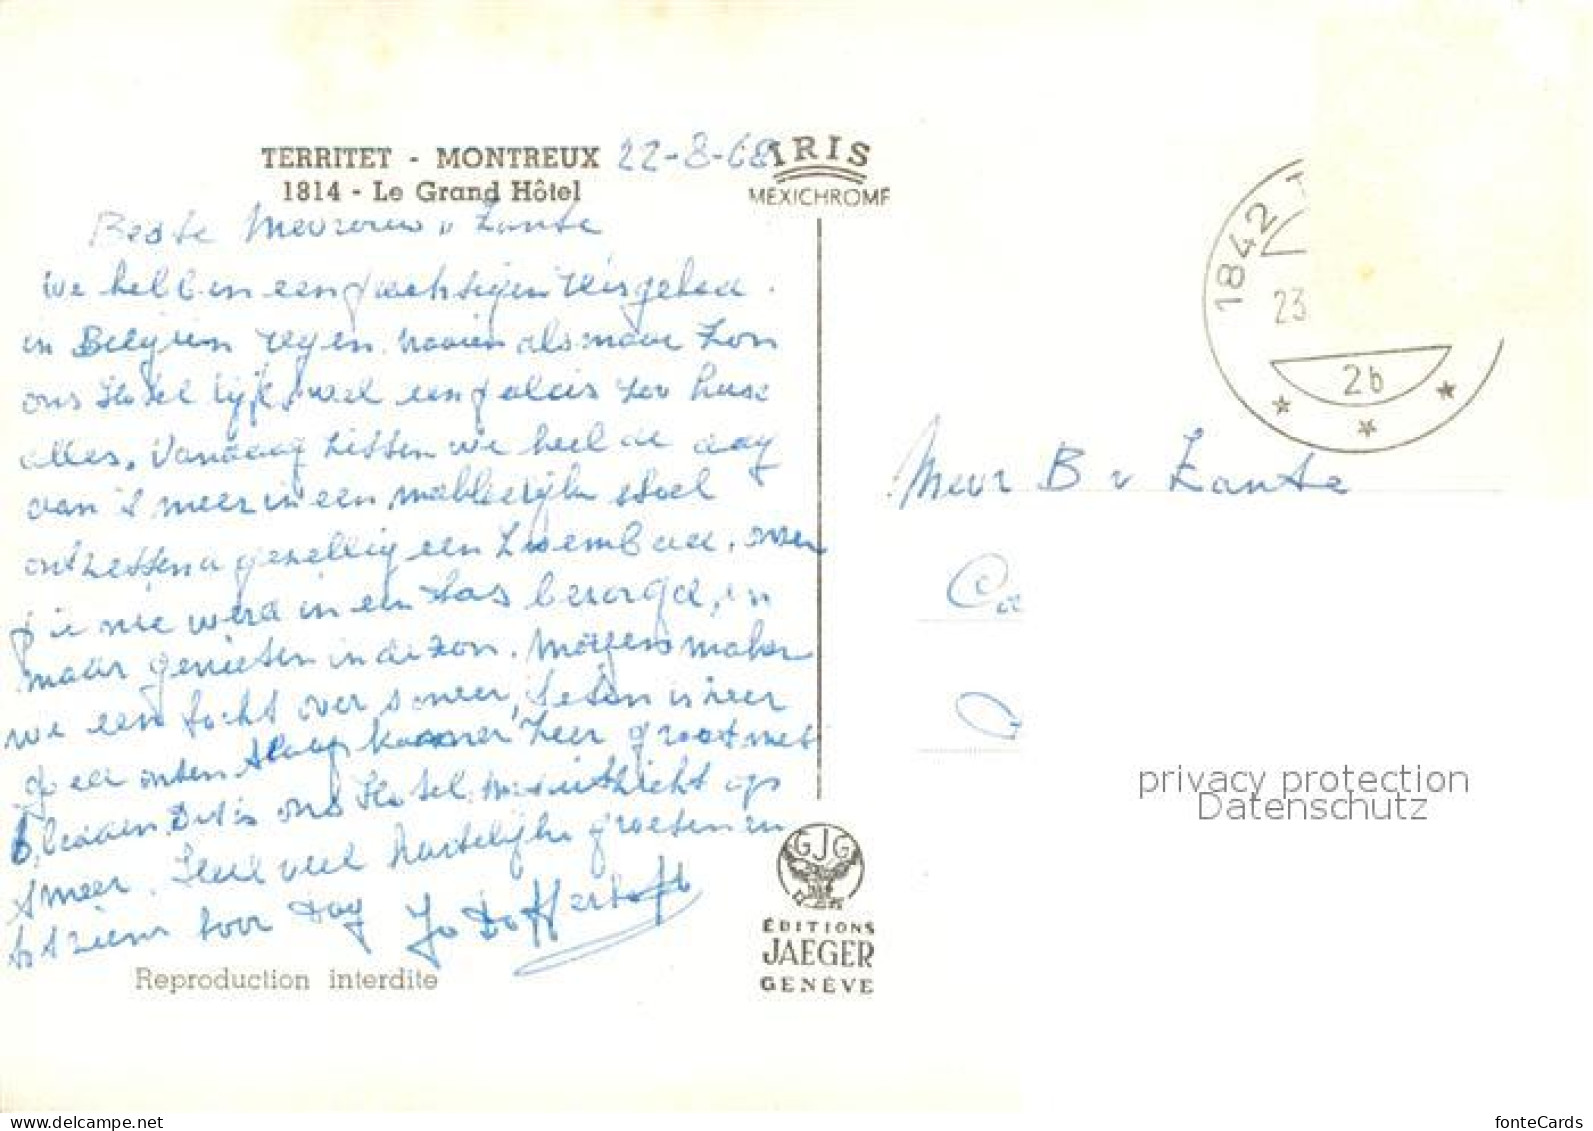 TERRITET - MONTREUX 22-8-68
1814 - Le Grand Hôtel
IRIS
MEXICHROME
Beste Mevrouw v Zante
we hebben een prachtigen reis gehad.
in Belgien regen. naaien als maar zon
ons Hotel lijk wel een paleis zoo luxe
alles. Vandaag zitten we heel de dag
aan 't meer in een makkelijke stoel
gezellig een zwembad.
die me werd in een tas bezorgd, en
maar genieten in de zon. Morgen maken
we een tocht over 't meer, 't eten is zeer
goed onzen slaapkamer zeer groot met
Dit is ons Hotel, met uitzicht op
't meer. Heel veel hartelijke groeten en
tot ziens hoor Dag Jo
Reproduction interdite
GJG
ÉDITIONS
JAEGER
GENÈVE
1842 T
23
2b
Mevr B v Zante
Ca
privacy protection
Datenschutz
www.delcampe.net
fonteCards